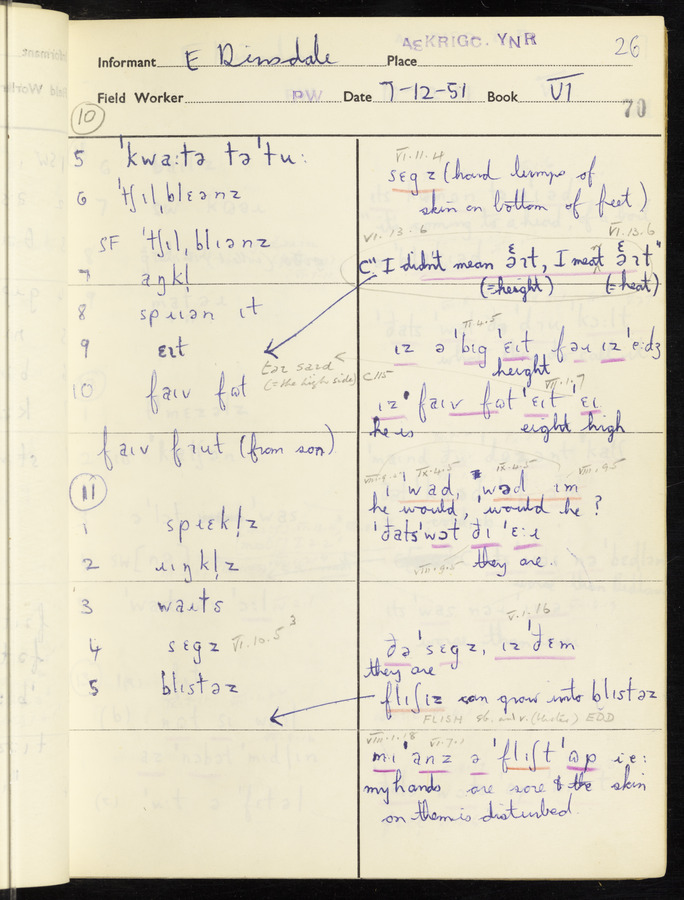 Informant E Dinsdale Place ASKRIGG. YNR 26
Field Worker PW Date 7-12-51 Book VI 70
10
5 ˈkwaːtə təˈtuː
6 ˈtʃɪlˌblɛənz
SF ˈtʃɪlˌblɪənz
7 aŋkl̩
8 spɹɪən ɪt
9 ɛɪt
Ear said
(= the high side) C115
10 faɪv fɷt
faɪv fɪut (from son)
11
1 spɹɛkl̩z
2 ɹɪŋkl̩z
3 waɪts
4 sɛgz VI.10.5 3
5 blɪstəz
VI.11.4
sɛgz (hard lumps of
skin on bottom of feet)
VI.13.6 VI.13.6
C" I didn't mean ɛɪt, I meat ɛɪt"
(=height) (=heat)
II.4.5
ɪz ə ˈbɪg ˈɛɪt fəɹ ɪz ˈeːdʒ
height
VII.1.7
ɪz faɪv fɷt ˈɛɪt ˈɛɪ
he is eight high
IX.4.5 IX.4.5 VIII.9.5
i ˈwad, ˈwəd ɪm
he would, would he ?
ˈðatsˈwɔt ðɪ ˈɛːɹ
VIII.9.5 they are
V.1.16
ðəˈsɛgz, ɪzˈðɛm
they are
flɪʃɪz can grow into blɪstəz
FLISH sb. and v. (blister) EDD
VIII.1.18 VI.7.1
mɪ ˈanz ə ˈflɪʃt ˈɷp i.e:
my hands are sore & the skin
on them is disturbed.